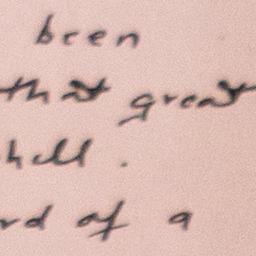 been
that great
hell.
rd of a